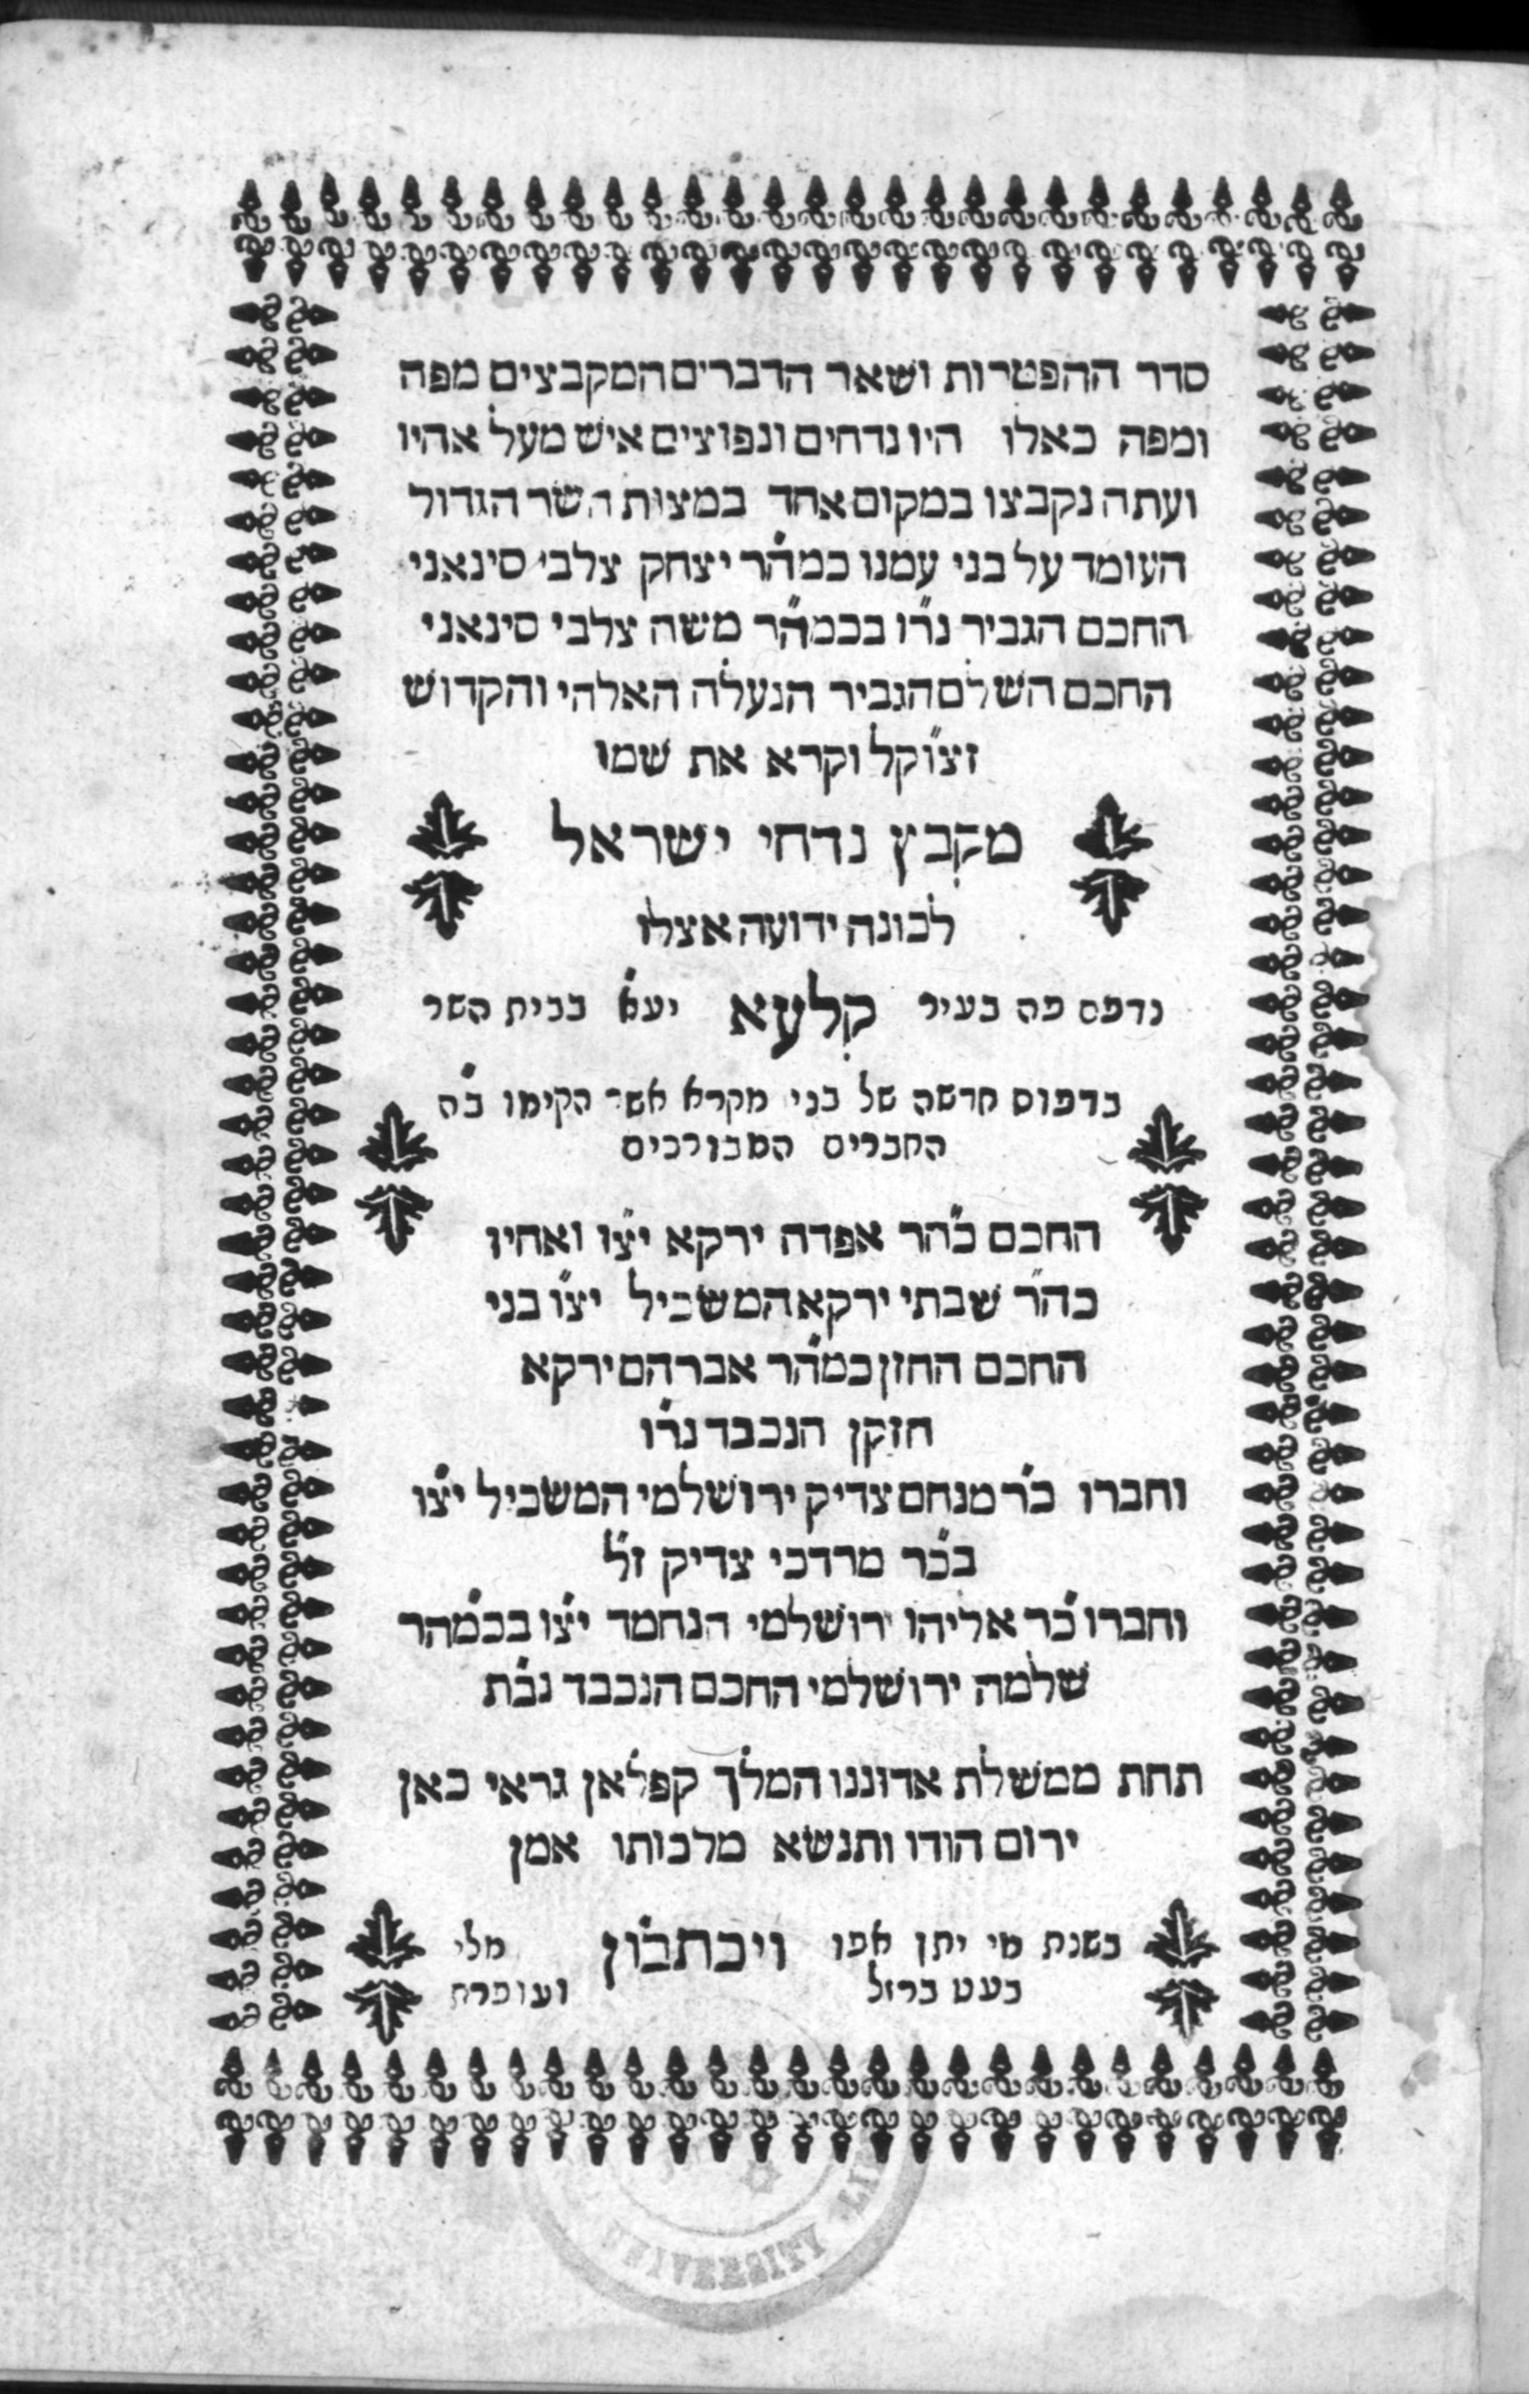 סדר ההפטרות ושאר הדברים המקבצים מפה
ומפה כאלו היו נדחים ונפוצים איש מעל אחיו
ועתה נקבצו במקום אחד במצות השר הגדול
העומד על בני עמנו כמה֞ר יצחק צלבי סינאני
החכם הגביר נר֞ו בכמה֞ר משה צלבי סינאני
החכם השלם הגביר הנעלה האלהי והקדוש
זצו֞קל וקרא את שמו
מקבץ נדחי ישראל
לכונה ידועה אצלו
נדפס פה בעיר קלעא יע֞א בבית השר
בדפוס חדשה של בני מקרא אשר הקימו ב֞ה
החברים המבורכים
החכם כ֞הר אפדה ירקא יצ֞ו ואחיו
כה֞ר שבתי ירקא המשכיל יצ֞ו בני
החכם החזן כמה֞ר אברהם ירקא
חזקן הנכבד נר֞ו
וחברו כ֞ר מנחם צדיק ירושלמי המשכיל יצ֞ו
בכ֞ר מרדכי צדיק ז֞ל
וחברו כ֞ר אליהו ירושלמי הנחמד יצ֞ו בכמ֞הר
שלמה ירושלמי החכם הנכבד נב֞ת
תחת ממשלת אדוננו המלך קפלאן גראי כאן
ירום הודו ותנשא מלכותו אמן
בשנת מי יתן אפו ויכתבון מלי
בעט ברזל ועופרת